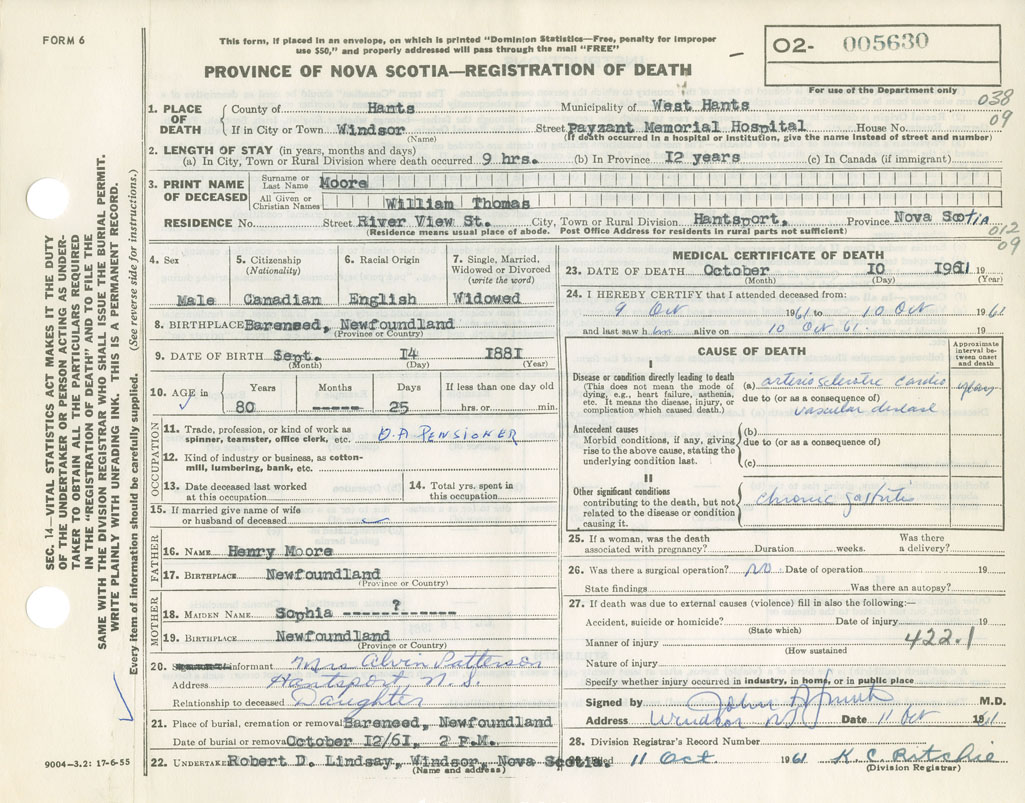 FORM 6
This form, if placed in an envelope, on which is printed "Dominion Statistics—Free, penalty for improper
use $50," and properly addressed will pass through the mail "FREE"
PROVINCE OF NOVA SCOTIA—REGISTRATION OF DEATH
02- 005630
For use of the Department only
038
09
SEC. 14—VITAL STATISTICS ACT MAKES IT THE DUTY
OF THE UNDERTAKER OR PERSON ACTING AS UNDER-
TAKER TO OBTAIN ALL THE PARTICULARS REQUIRED
IN THE "REGISTRATION OF DEATH" AND TO FILE THE
SAME WITH THE DIVISION REGISTRAR WHO SHALL ISSUE THE BURIAL PERMIT.
WRITE PLAINLY WITH UNFADING INK. THIS IS A PERMANENT RECORD.
Every item of information should be carefully supplied. (See reverse side for instructions.)
1. PLACE OF DEATH County of Hants Municipality of West Hants
If in City or Town Windsor (Name) Street Payzant Memorial Hospital House No.
(If death occurred in a hospital or institution, give the name instead of street and number)
2. LENGTH OF STAY (in years, months and days)
(a) In City, Town or Rural Division where death occurred 9 hrs. (b) In Province 12 years (c) In Canada (if immigrant)
3. PRINT NAME OF DECEASED Surname or Last Name Moore
All Given or Christian Names William Thomas
RESIDENCE No. Street River View St. City, Town or Rural Division Hantsport, Province Nova Scotia
(Residence means usual place of abode. Post Office Address for residents in rural parts not sufficient)
012
09
4. Sex Male
5. Citizenship (Nationality) Canadian
6. Racial Origin English
7. Single, Married, Widowed or Divorced (write the word) Widowed
8. BIRTHPLACE Bareneed, Newfoundland
(Province or Country)
9. DATE OF BIRTH Sept. 14 1881
(Month) (Day) (Year)
10. AGE in Years 80 Months ----- Days 25 If less than one day old hrs. or min.
OCCUPATION
11. Trade, profession, or kind of work as
spinner, teamster, office clerk, etc. O.A PENSIONER
12. Kind of industry or business, as cotton-
mill, lumbering, bank, etc.
13. Date deceased last worked
at this occupation
14. Total yrs. spent in
this occupation
15. If married give name of wife
or husband of deceased
FATHER
16. NAME Henry Moore
17. BIRTHPLACE Newfoundland
(Province or Country)
MOTHER
18. MAIDEN NAME Sophia ------?-------
19. BIRTHPLACE Newfoundland
(Province or Country)
20. informant Mrs Alvin Patterson
Address Hantsport N.S.
Relationship to deceased Daughter
21. Place of burial, cremation or removal Bareneed, Newfoundland
Date of burial or removal October 12/61, 2 P.M.
22. UNDERTAKER Robert D. Lindsay, Windsor, Nova Scotia.
(Name and address)
9004—3.2: 17-6-55
MEDICAL CERTIFICATE OF DEATH
23. DATE OF DEATH October 10 1961 19
(Month) (Day) (Year)
24. I HEREBY CERTIFY that I attended deceased from:
9 Oct 1961 to 10 Oct 1961
and last saw him alive on 10 Oct 61 19
CAUSE OF DEATH
Approximate interval between onset and death
I
Disease or condition directly leading to death
(This does not mean the mode of
dying, e.g., heart failure, asthenia,
etc. It means the disease, injury, or
complication which caused death.)
(a) arteriosclerotic cardio years
due to (or as a consequence of)
vascular disease
Antecedent causes
Morbid conditions, if any, giving
rise to the above cause, stating the
underlying condition last.
(b)
due to (or as a consequence of)
(c)
II
Other significant conditions
contributing to the death, but not
related to the disease or condition
causing it.
chronic gastritis
25. If a woman, was the death
associated with pregnancy? Duration weeks. Was there
a delivery?
26. Was there a surgical operation? NO Date of operation 19
State findings Was there an autopsy?
27. If death was due to external causes (violence) fill in also the following:—
Accident, suicide or homicide? Date of injury 19
(State which)
Manner of injury 422.1
(How sustained
Nature of injury
Specify whether injury occurred in industry, in home, or in public place
Signed by John Smith M.D.
Address Windsor NS Date 11 Oct 1961
28. Division Registrar's Record Number
11 Oct 1961 K. C. Ritchie
(Division Registrar)